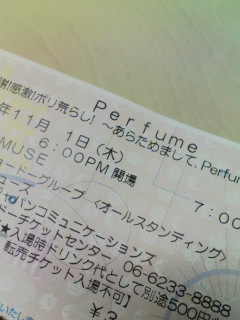 Perfume
謝!感激!ポリ荒らし! ~あらためまして、Perfum
年11月 1日(木)
6:00PM 開場 7:00
MUSE
ョードーグループ 〈オールスタンディング〉
ュース
ジャパンコミュニケーションズ
ドーチケットセンター 06-6233-8888
★入場時ドリンク代として別途500円
転売チケット入場不可】